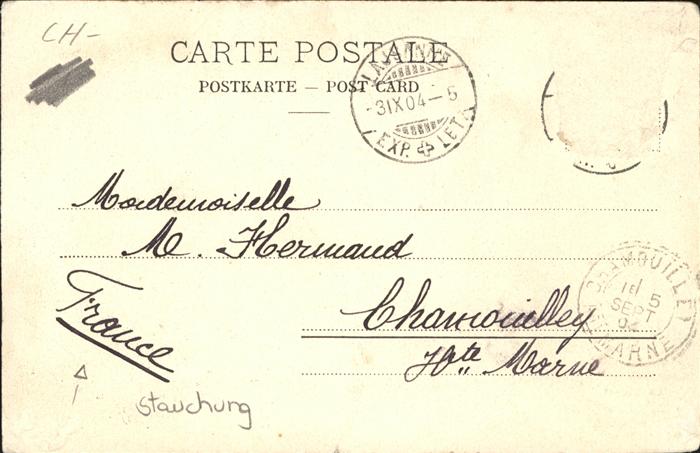 CH-
CARTE POSTALE
POSTKARTE — POST CARD
LAUSANNE
-3 IX 04 - 5
EXP. LET.
Mademoiselle
M. Hermand
France
Chamouilley
Hte Marne
CHAMOUILLEY
5
SEPT
04
MARNE
Stauchung